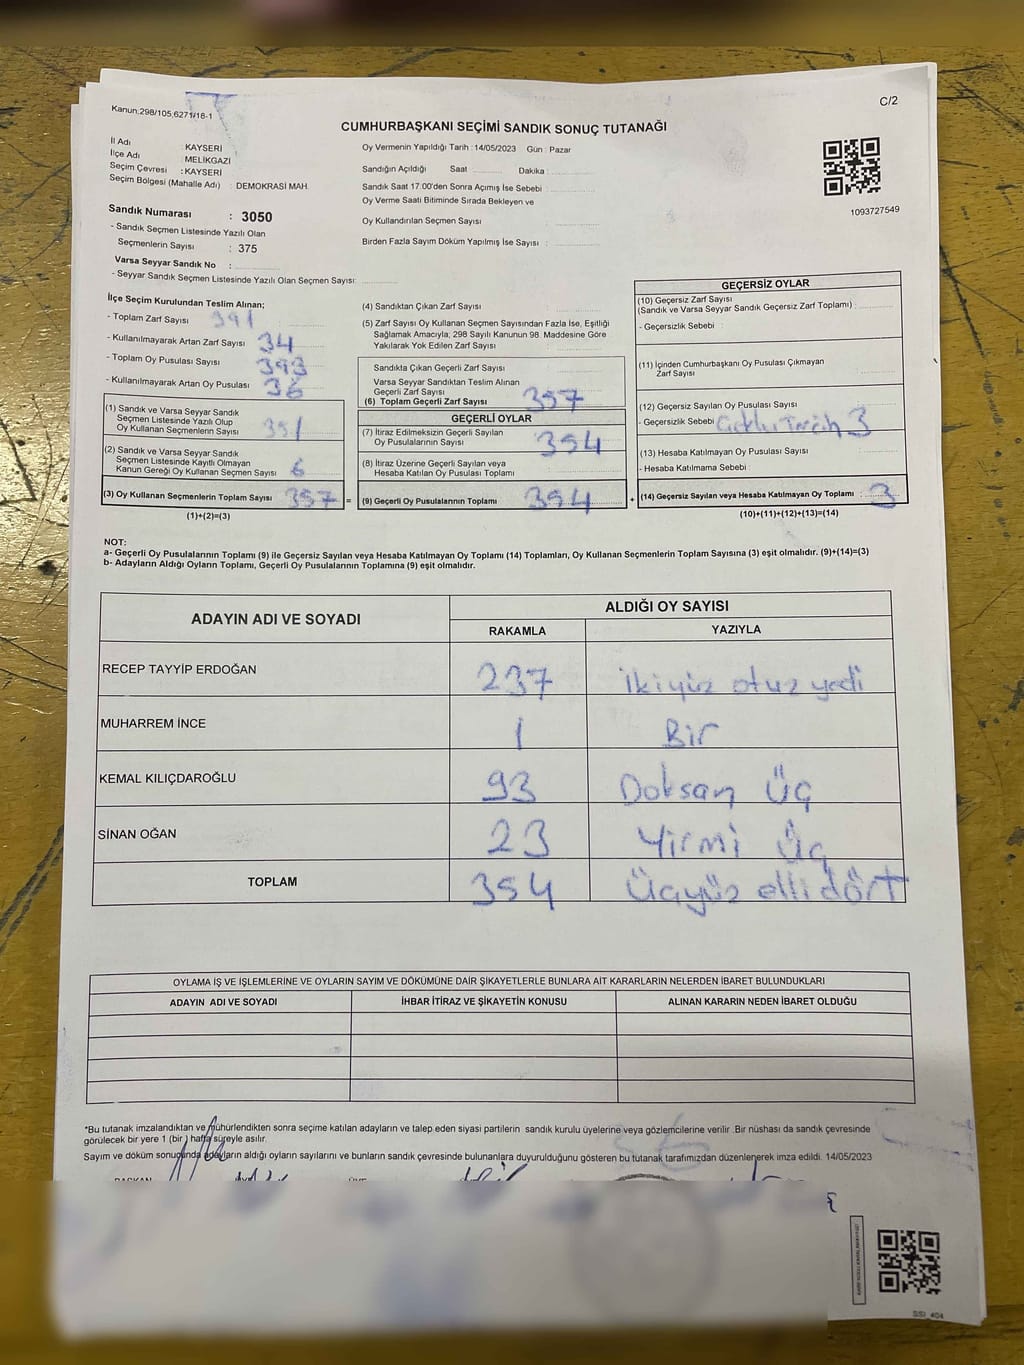 Kanun:298/105,6271/18-1
C/2
CUMHURBAŞKANI SEÇİMİ SANDIK SONUÇ TUTANAĞI
İl Adı : KAYSERİ
İlçe Adı : MELİKGAZİ
Seçim Çevresi : KAYSERİ
Seçim Bölgesi (Mahalle Adı) : DEMOKRASİ MAH.
Oy Vermenin Yapıldığı Tarih : 14/05/2023 Gün : Pazar
Sandığın Açıldığı Saat Dakika :
Sandık Saat 17:00'den Sonra Açımış İse Sebebi :
Oy Verme Saati Bitiminde Sırada Bekleyen ve
Oy Kullandırılan Seçmen Sayısı
Birden Fazla Sayım Döküm Yapılmış İse Sayısı :
1093727549
Sandık Numarası : 3050
- Sandık Seçmen Listesinde Yazılı Olan
Seçmenlerin Sayısı : 375
Varsa Seyyar Sandık No :
- Seyyar Sandık Seçmen Listesinde Yazılı Olan Seçmen Sayısı:
İlçe Seçim Kurulundan Teslim Alınan;
- Toplam Zarf Sayısı 391
- Kullanılmayarak Artan Zarf Sayısı 34
- Toplam Oy Pusulası Sayısı 393
- Kullanılmayarak Artan Oy Pusulası 36
(1) Sandık ve Varsa Seyyar Sandık
Seçmen Listesinde Yazılı Olup
Oy Kullanan Seçmenlerin Sayısı 351
(2) Sandık ve Varsa Seyyar Sandık
Seçmen Listesinde Kayıtlı Olmayan
Kanun Gereği Oy Kullanan Seçmen Sayısı 6
(3) Oy Kullanan Seçmenlerin Toplam Sayısı 357 =
(1)+(2)=(3)
(4) Sandıktan Çıkan Zarf Sayısı :
(5) Zarf Sayısı Oy Kullanan Seçmen Sayısından Fazla İse, Eşitliği
Sağlamak Amacıyla; 298 Sayılı Kanunun 98. Maddesine Göre
Yakılarak Yok Edilen Zarf Sayısı
Sandıkta Çıkan Geçerli Zarf Sayısı :
Varsa Seyyar Sandıktan Teslim Alınan
Geçerli Zarf Sayısı
(6) Toplam Geçerli Zarf Sayısı 357
GEÇERLİ OYLAR
(7) İtiraz Edilmeksizin Geçerli Sayılan
Oy Pusulalarının Sayısı 354
(8) İtiraz Üzerine Geçerli Sayılan veya
Hesaba Katılan Oy Pusulası Toplamı
(9) Geçerli Oy Pusulalarının Toplamı 354 +
GEÇERSİZ OYLAR
(10) Geçersiz Zarf Sayısı
(Sandık ve Varsa Seyyar Sandık Geçersiz Zarf Toplamı) :
- Geçersizlik Sebebi :
(11) İçinden Cumhurbaşkanı Oy Pusulası Çıkmayan
Zarf Sayısı
(12) Geçersiz Sayılan Oy Pusulası Sayısı
- Geçersizlik Sebebi Çoklu Tercih 3
(13) Hesaba Katılmayan Oy Pusulası Sayısı
- Hesaba Katılmama Sebebi :
(14) Geçersiz Sayılan veya Hesaba Katılmayan Oy Toplamı : 3
(10)+(11)+(12)+(13)=(14)
NOT:
a- Geçerli Oy Pusulalarının Toplamı (9) ile Geçersiz Sayılan veya Hesaba Katılmayan Oy Toplamı (14) Toplamları, Oy Kullanan Seçmenlerin Toplam Sayısına (3) eşit olmalıdır. (9)+(14)=(3)
b- Adayların Aldığı Oyların Toplamı, Geçerli Oy Pusulalarının Toplamına (9) eşit olmalıdır.
ADAYIN ADI VE SOYADI
ALDIĞI OY SAYISI
RAKAMLA YAZIYLA
RECEP TAYYİP ERDOĞAN 237 ikiyüz otuz yedi
MUHARREM İNCE 1 Bir
KEMAL KILIÇDAROĞLU 93 Doksan Üç
SİNAN OĞAN 23 Yirmi Üç
TOPLAM 354 Üçyüz elli dört
OYLAMA İŞ VE İŞLEMLERİNE VE OYLARIN SAYIM VE DÖKÜMÜNE DAİR ŞİKAYETLERLE BUNLARA AİT KARARLARIN NELERDEN İBARET BULUNDUKLARI
ADAYIN ADI VE SOYADI İHBAR İTİRAZ VE ŞİKAYETİN KONUSU ALINAN KARARIN NEDEN İBARET OLDUĞU
*Bu tutanak imzalandıktan ve mühürlendikten sonra seçime katılan adayların ve talep eden siyasi partilerin sandık kurulu üyelerine veya gözlemcilerine verilir .Bir nüshası da sandık çevresinde
görülecek bir yere 1 (bir ) hafta süreyle asılır.
Sayım ve döküm sonucunda adayların aldığı oyların sayılarını ve bunların sandık çevresinde bulunanlara duyurulduğunu gösteren bu tutanak tarafımızdan düzenlenerek imza edildi. 14/05/2023